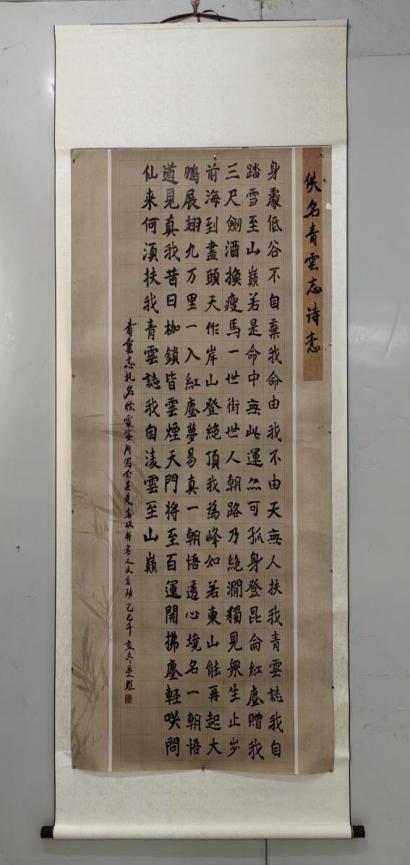 佚名青雲志诗意
身處低谷不自棄我命由我不由天無人扶我青雲誌我自
踏雪至山巔若是命中無此運亦可孤身登昆侖紅塵贈我
三尺劍酒換瘦馬一世街世人朝路乃絶澗獨見衆生止步
前海到盡頭天作岸山登絶頂我為峰如若東山能再起大
鵬展翅九万里一入紅塵夢易真一朝悟透心境名一朝悟
道見真我昔日枷鎖皆雲煙天門將至百運開拂塵輕咲問
仙来何須扶我青雲誌我自淩雲至山巔
青雲志